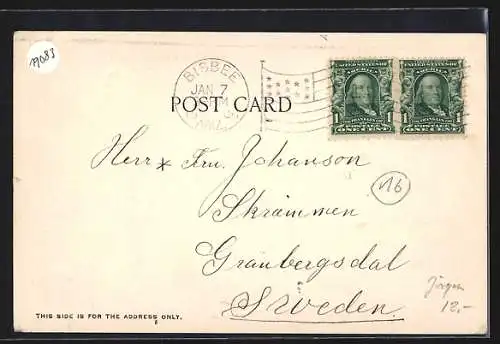 19083
BISBEE
JAN 7
ARIZ.
POST CARD
UNITED STATES OF AMERICA
FRANKLIN
POSTAGE
1 ONE CENT 1
UNITED STATES OF AMERICA
FRANKLIN
POSTAGE
1 ONE CENT 1
Herr & Fru. Johanson
Skrämmen
Graubergsdal
Sweden.
N6
12.-
THIS SIDE IS FOR THE ADDRESS ONLY.